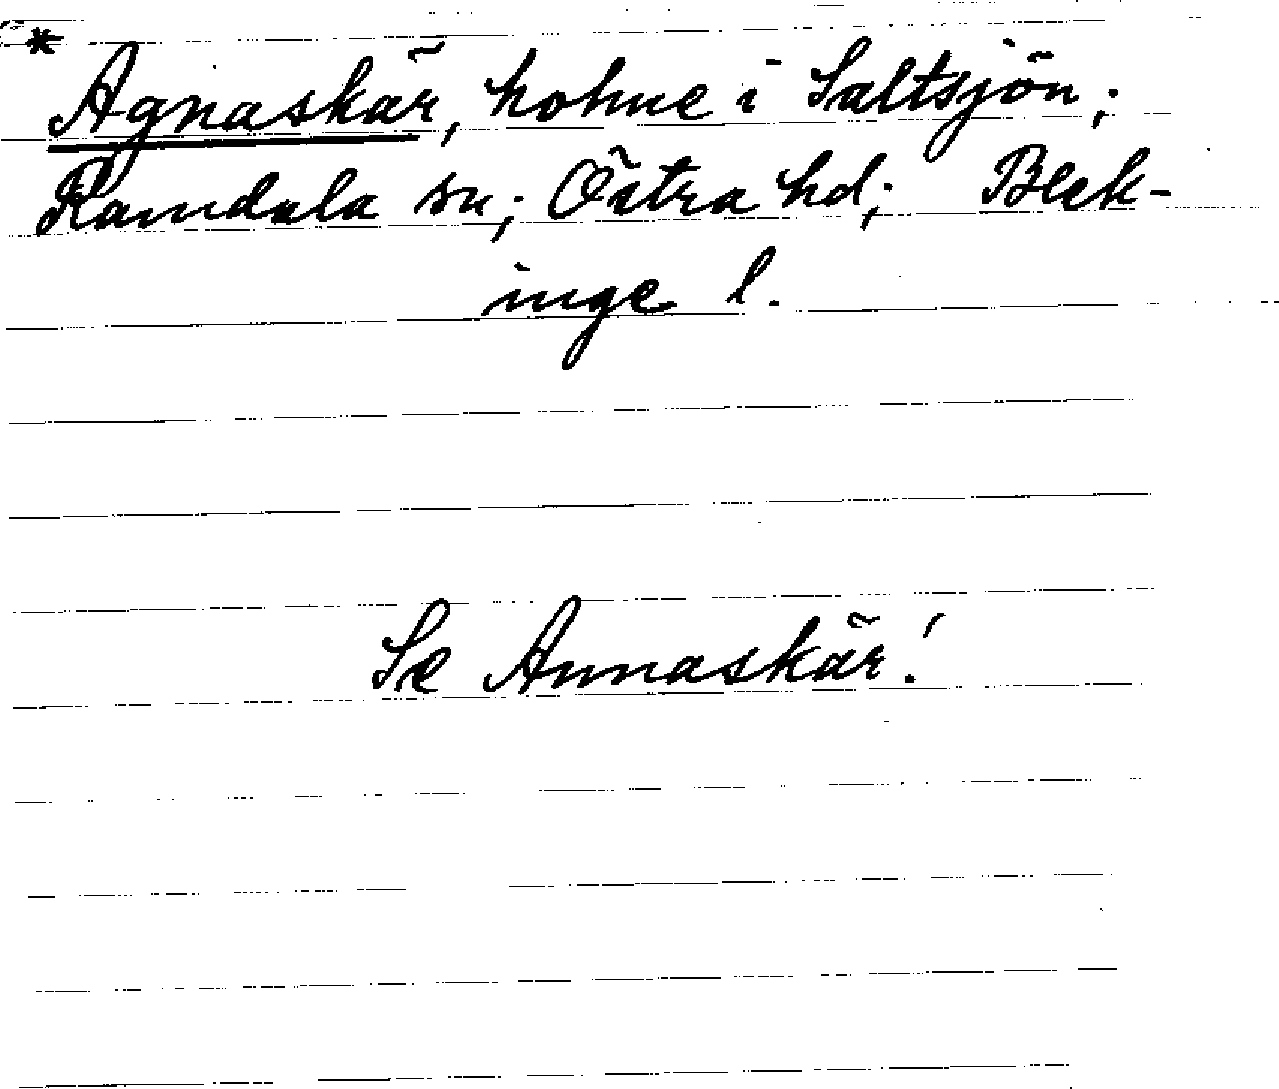 * Agnaskär, holme i Saltsjön;
Ramdala sn; Östra hd; Blek-
inge l.
Se Annaskär!